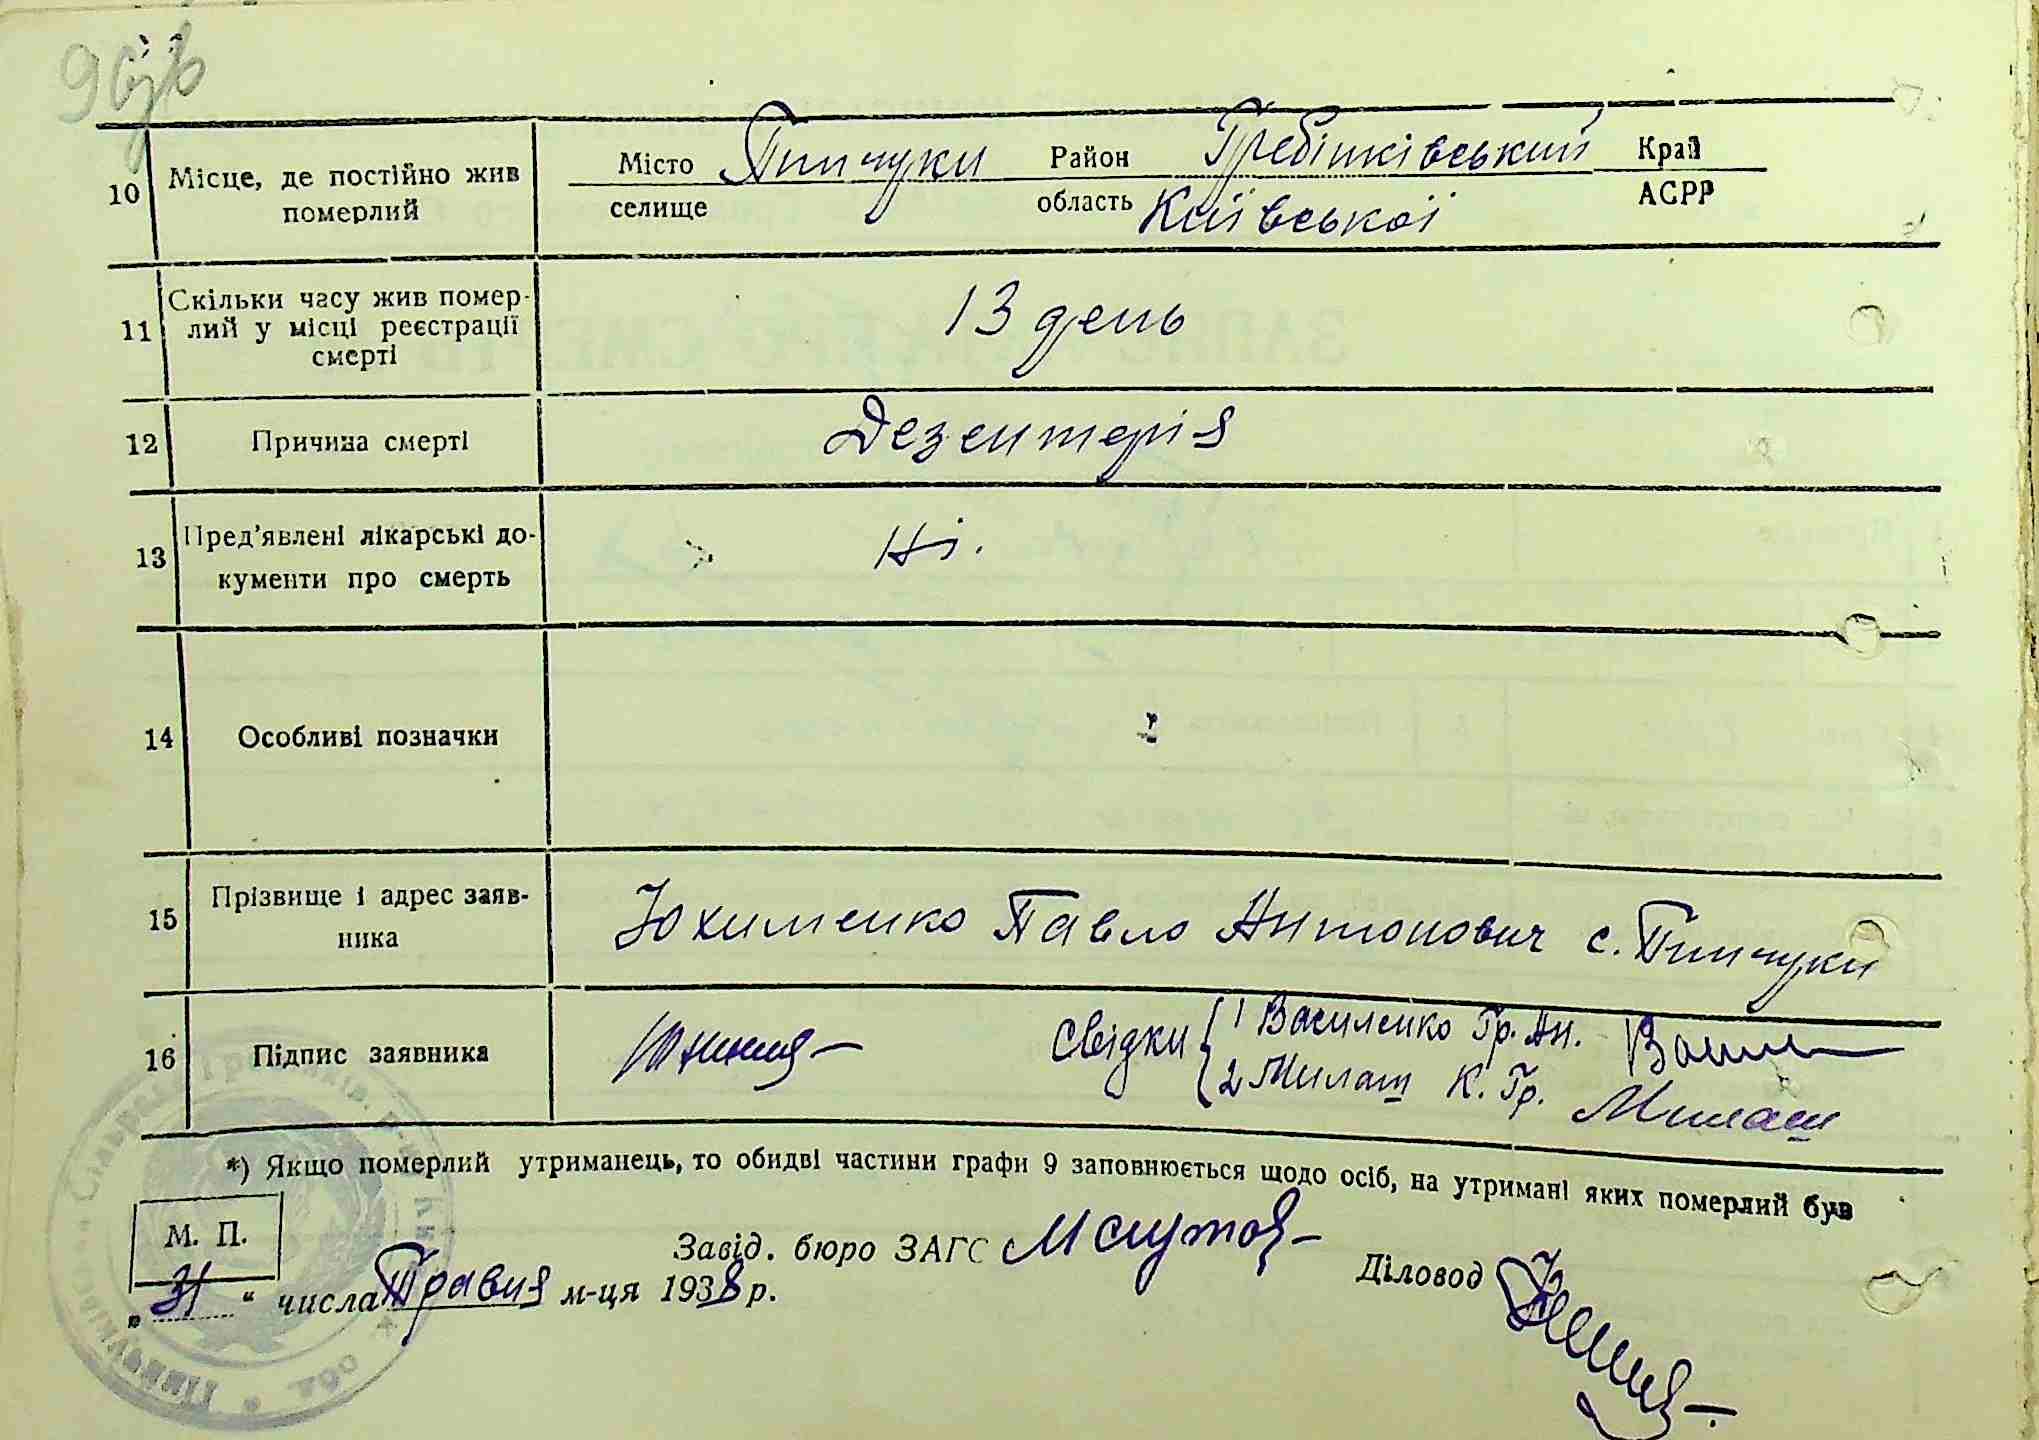 10 Місце, де постійно жив померлий
Місто селище Пинчуки Район область Гребінківський Київської Край АСРР
11 Скільки часу жив помер-
лий у місці реєстрації
смерті
13 день
12 Причина смерті
Дезентерія
13 Пред'явлені лікарські до-
кументи про смерть
Ні.
14 Особливі позначки
15 Прізвище і адрес заяв-
ника
Юхименко Павло Антонович с. Пинчуки
16 Підпис заявника
Свідки { 1 Василенко Гр. Ан.
2 Милаш К. Гр. Милаш
*) Якщо померлий утриманець, то обидві частини графи 9 заповнюється щодо осіб, на утримані яких померлий був
М. П.
Завід. бюро ЗАГС
Діловод
„31“ числа Травня м-ця 1938 р.